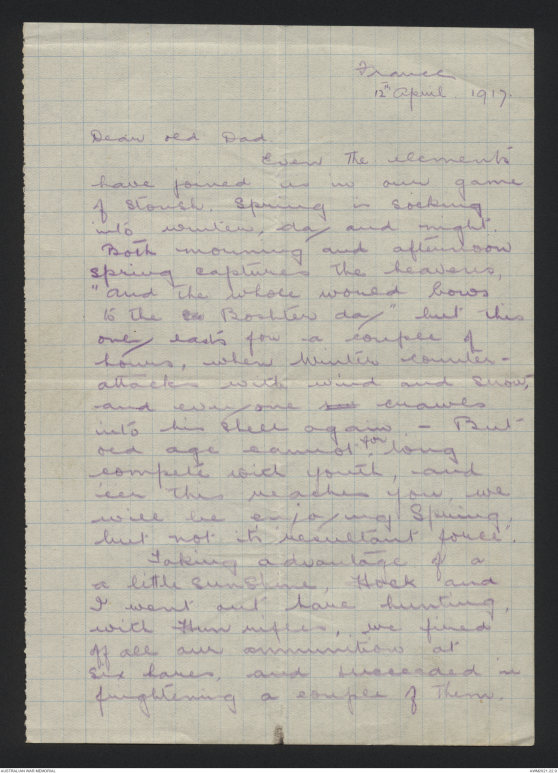 France
12th April. 1917.
Dear old Dad.
Even the elements
have joined us in our game
of Stoush. Spring is socking
into winter, day and night.
Both mourning and afternoon
Spring captures the heavens,
"and the whole world bows
to the Boshter day" but this
only lasts for a couple of
hours, when Winter counter-
attacks with wind and snow,
and everyone crawls
into his shell again. – But
old age cannot for long
compete with youth, and
'eer this reaches you, we
will be enjoying Spring,
but not its "resultant force".
Taking advantage of a
a little sunshine, Hock and
I went out hare hunting,
with Hun rifles, we fired
off all our ammunition at
six hares, and succeeded in
frightening a couple of them.
AUSTRALIAN WAR MEMORIAL